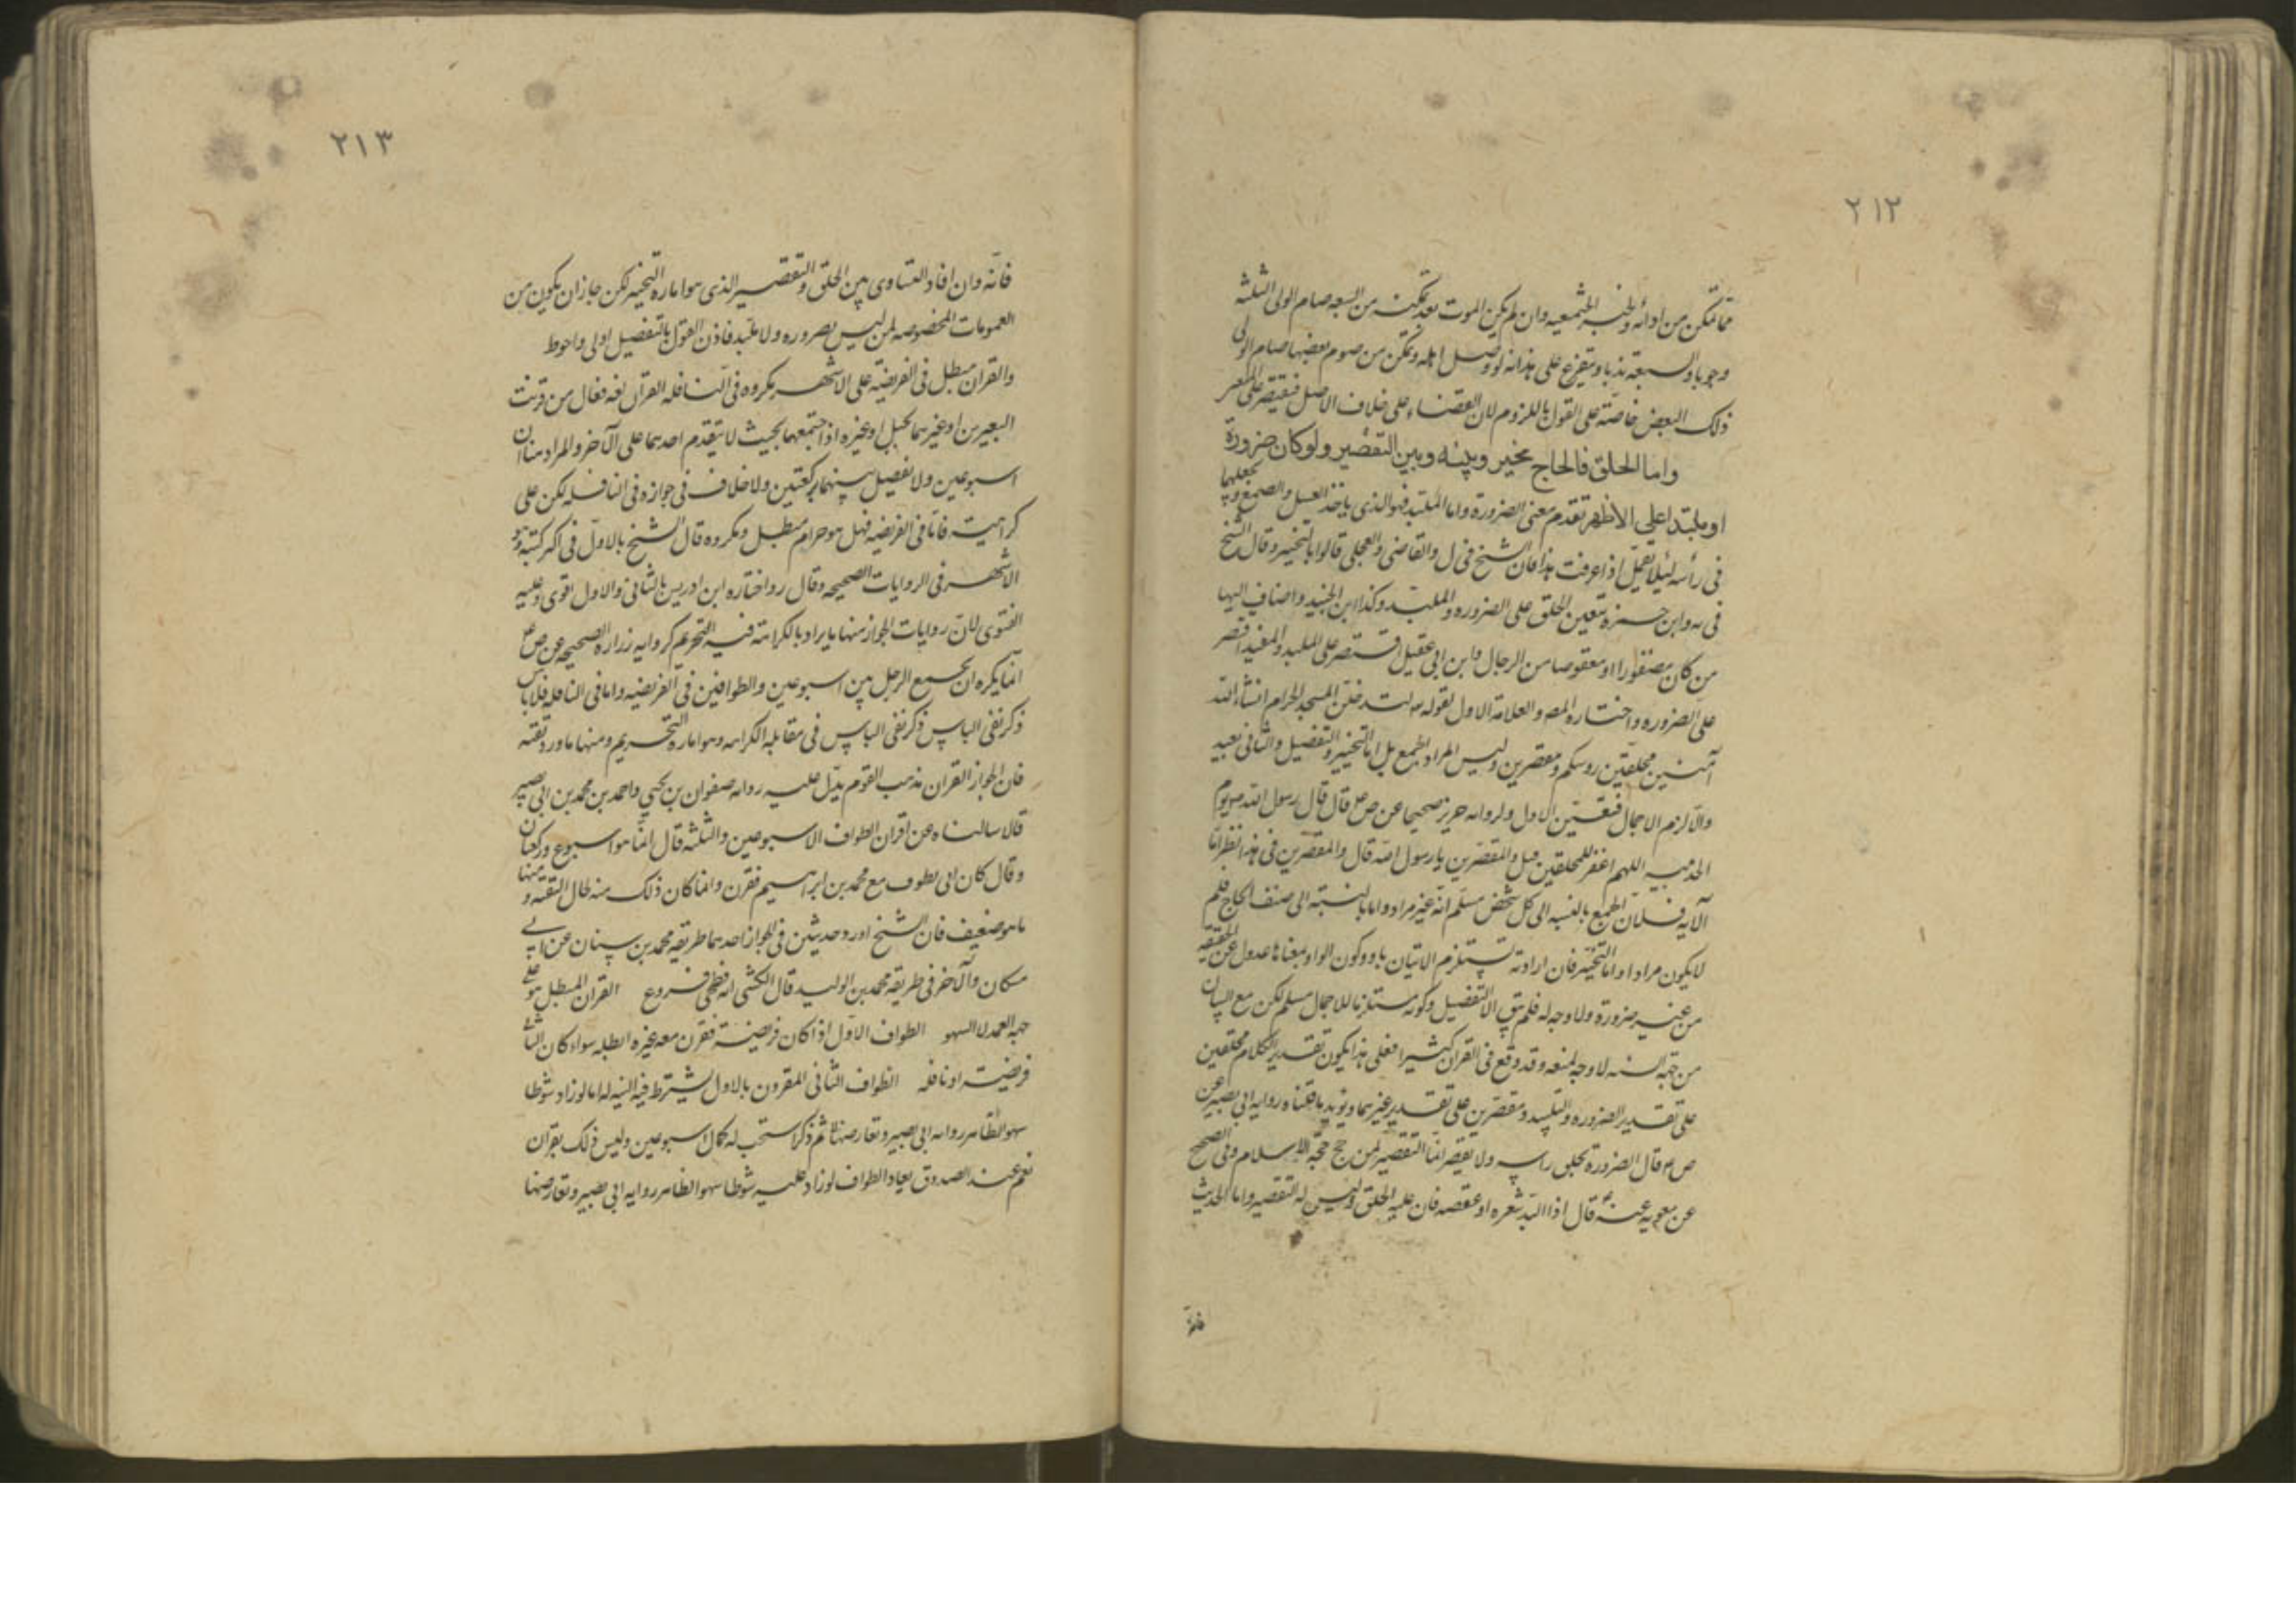 ٢١٢
مما تمكن من ادائه وظنه المجتمعيه وان لم يكن الموت بعد تمكنه من السبعه صام الولى الثلثه
وجوبا والسبعة ندبا ويتفرع على هذا انه لو وصل اهله وتمكن من صوم بعضها صام الولى
ذلك البعض خاصّة على القول باللزوم لان القضاء على خلاف الاصل فيقتصر على
واما الحلق فالحاج مخير وبينه وبين التقصير ولو كان ضرورة
او ملبّدا على الاظهر تقدم معنى الضرورة واما الملبّد فهو الذى ياخذ العسل والصمغ ويجعلهما
فى رأسه لئلا يقمل اذا عرفت هذا فان الشيخ فى ل والقاضى والعجلى قالوا بالتخيير وقال الشيخ
فى يه وابن حمزه بتعين الحلق على الضروره والملبّد وكذا ابن الجنيد واضاف اليها
من كان مضفورا او معقوصا من الرجال وابن ابى عقيل اقتصر على الملبد والمفيد اقتصر
على الضروره واختاره المص والعلامة الاول لقوله تعالى لتدخلنّ المسجد الحرام انشاء الله
آمنين محلقين روسكم ومقصرين وليس المراد الجمع بل اما التخيير والتفصيل والثانى بعيد
والّا لزم الاجمال فتعيّن الاول ولروايه حريز صحيحا عن ص ع قال قال رسول الله ص يوم
الحديبيه اللهم اغفر للمحلقين قيل والمقصّرين يا رسول الله قال والمقصّرين فى هذا نظر امّا
الآيه فلانّ الجمع بالنسبه الى كل شخص مسلّم انّه غير مراد واما بالنسبة الى صنف الحاج فلم
لا يكون مرادا واما التخيير فان ارادته تستلزم الاتيان باو وكون الواو بمعناها عدول عن الحقيقه
من غير ضرورة ولا وجه له فلم يبق الا التفصيل وكونه مستلزما للاجمال مسلم لكن مع البيان
من جهة السنه لا وجه لمنعه وقد وقع فى القرآن كثيرا فعلى هذا يكون تقدير الكلام محلقين
على تقدير الضروره والتلبيد ومقصّرين على تقدير غيرهما ويؤيد ما قلناه رواية ابى بصير عن
ص ع قال الضرورة يحلق راسه ولا يقصر انّما التقصير لمن حج حجّة الاسلام وفى الصحيح
عن معويه عنه قال اذا البّد شعره او عقصه فان عليه الحلق وليس له التقصير واما الحديث
فانّه
٢١٣
فانّه وان افاد التساوى بين الحلق والتقصير الذى هو اماره التخيير لكن جاز ان يكون من
العمومات المخصوصه لمن ليس بضروره ولا ملبّد فاذن القول بالتفصيل اولى واحوط
والقران مبطل فى الفريضة على الاشهر مكروه فى النافله القران لغه فعال من قرنت
البعيرين او غيرهما بحبل او غيره اذا جمعتهما بحيث لا يتقدم احدهما على الآخر والمراد هنا ان
اسبوعين ولا تفصيل بينهما بركعتين ولا خلاف فى جوازه فى النافله لكن على
كراهيت فامّا فى الفريضه فهل هو حرام مبطل ومكروه قال الشيخ بالاول فى اكثر كتبه وهو
الاشهر فى الروايات الصحيحه وقال واختاره ابن ادريس بالثانى والاول اقوى وعليه
الفتوى لانّ روايات الجواز منها ما يراد بالكراهة فيه التحريم كروايه زراره الصحيحه عن ص ع
انما يكره ان يجمع الرجل بين اسبوعين والطوافين فى الفريضه واما فى النافله فلا باس
ذكر نفى الباس ذكر نفى الباس فى مقابلة الكراهه وهو اماره التحريم ومنها ما ورد تقيه
فان الجواز القران مذهب القوم يدلّ عليه روايه صفوان بن يحيى واحمد بن محمد بن ابى نصير
قالا سالناه عن اقران الطواف الاسبوعين والثلثه قال انّما هو اسبوع وركعتان
وقال كان ابى يطوف مع محمد بن ابراهيم فقرن وانما كان ذلك منه لحال التقيه ومنها
ما هو ضعيف فان الشيخ اورد حديثين فى الجواز احدهما طريقه محمد بن سنان عن ابى
مسكان والآخر فى طريقه محمد بن الوليد قال الكشى انه فطحى فروع القران المبطل هو على
جهة العمد لا السهو الطواف الاوّل اذا كان فريضة فقرن معه غيره ابطله سواء كان الثانى
فريضة او نافله الطواف الثانى المقرون بالاول يشترط فيه النيه له اما لو زاد شوطا
سهوا لظاهر روايه ابى بصير وتعارضها ثم ذكر استحب له كمال اسبوعين وليس ذلك بقران
نعم عند الصدوق يعاد الطواف لو زاد عليه شوطا سهوا لظاهر روايه ابى بصير وتعارضها